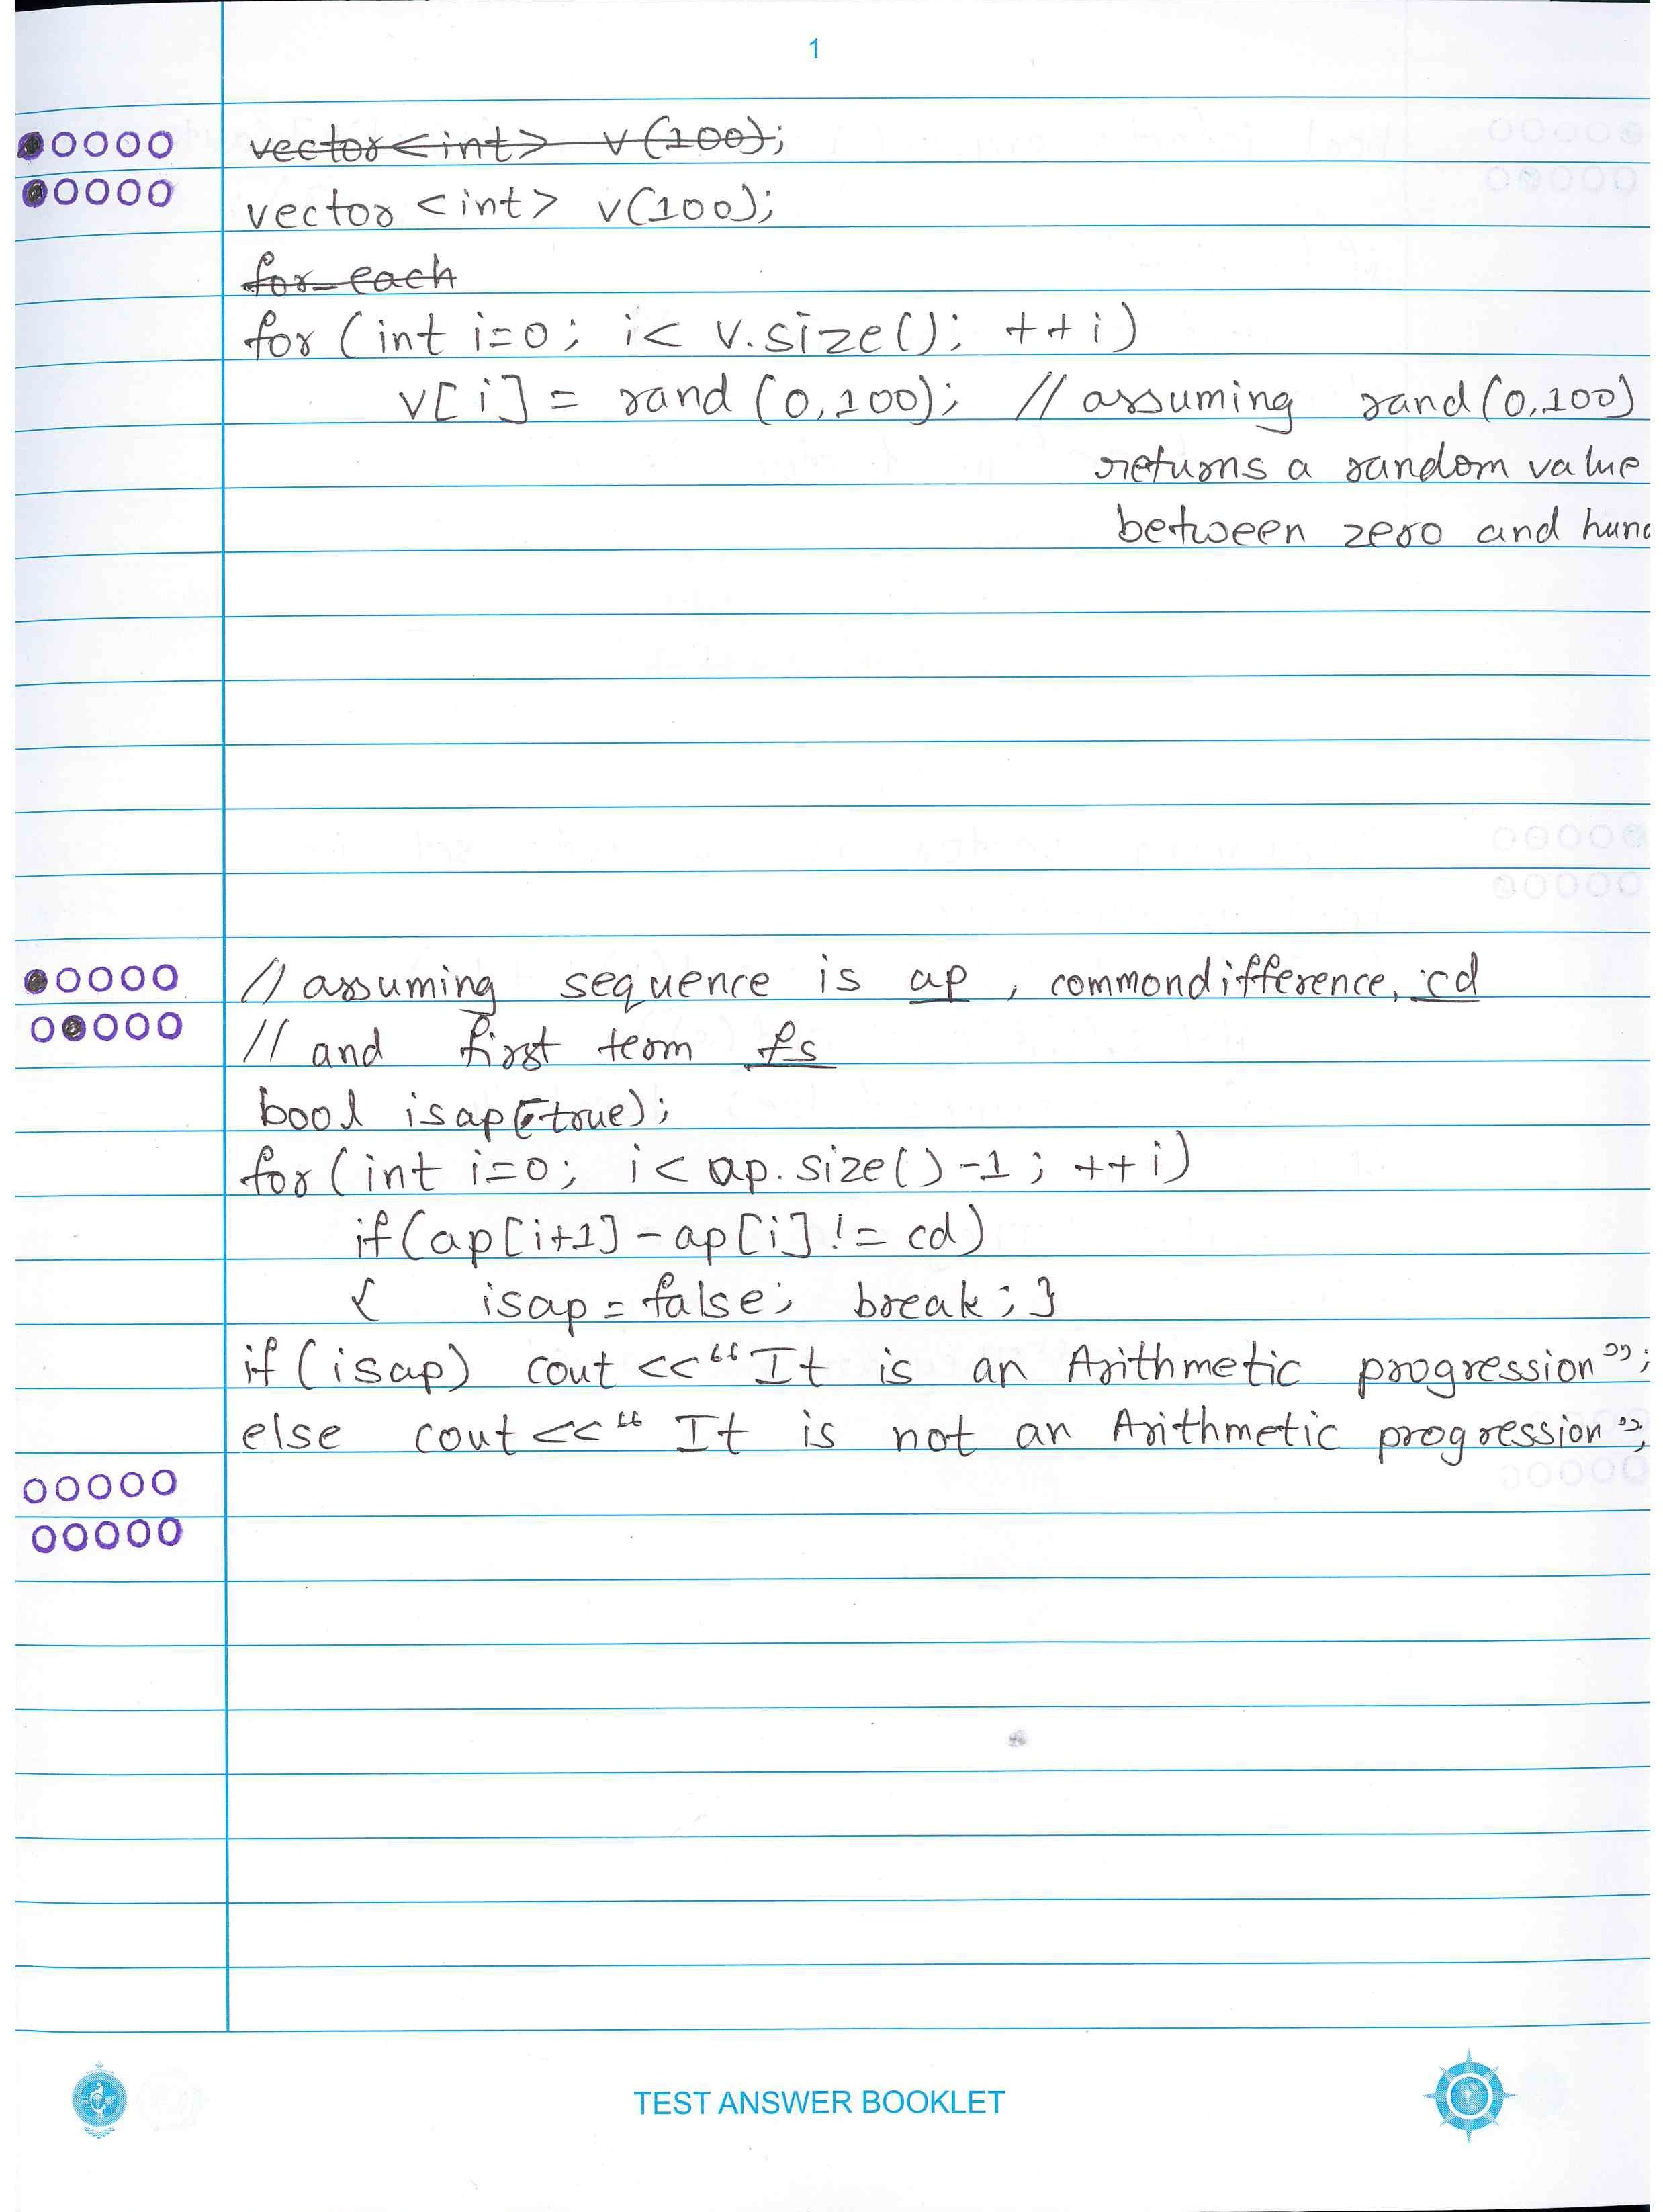 1
vector<int> v(100);
vector <int> v(100);
for each
for (int i=0; i< v.size(); ++i)
v[i] = rand (0,100); // assuming rand(0,100)
returns a random value
between zero and hund
// assuming sequence is ap, commondifference, cd
// and first term fs
bool isap(true);
for (int i=0; i< ap.size()-1; ++i)
if (ap[i+1] - ap[i] != cd)
{ isap = false; break; }
if (isap) cout <<"It is an Arithmetic progression";
else cout <<" It is not an Arithmetic progression";
TEST ANSWER BOOKLET